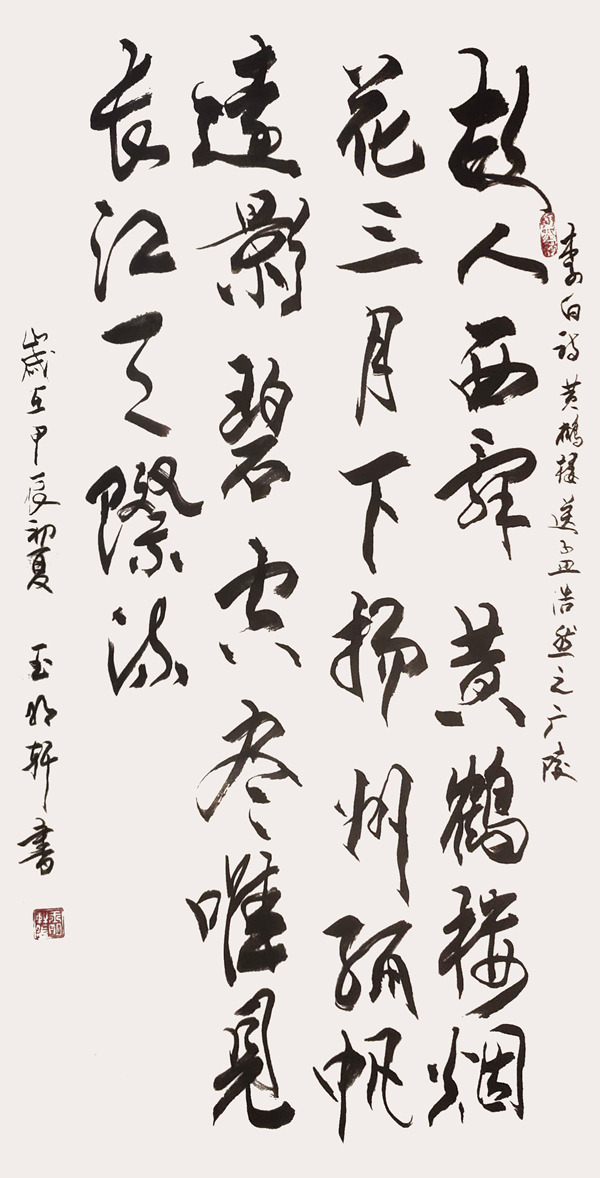 李白詩黄鶴楼送孟浩然之广陵
故人西辞黄鶴楼烟
花三月下扬州孤帆
遠影碧空尽唯見
长江天際流
歲在甲辰初夏 玉明軒書